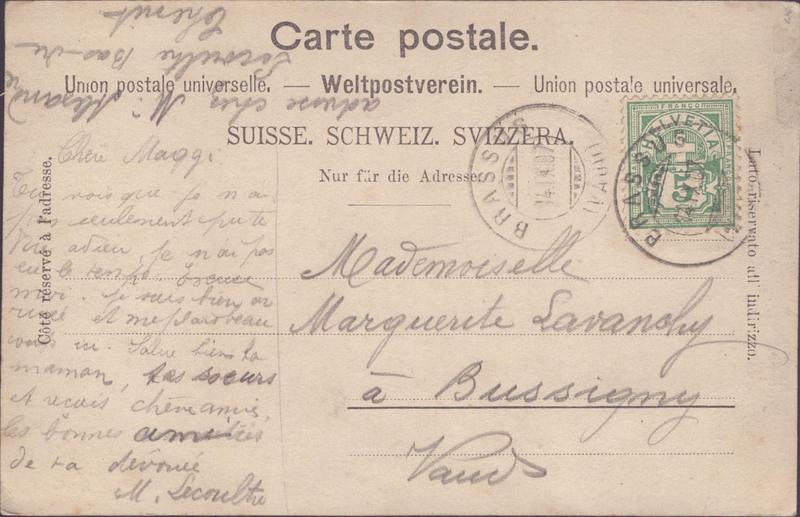 Carte postale.
Union postale universelle. — Weltpostverein. — Union postale universale.
SUISSE. SCHWEIZ. SVIZZERA.
Nur für die Adresse.
Côté réservé à l'adresse.
Lato riservato all' indirizzo.
FRANCO
HELVETIA
5
BRASSUS
(VAUD)
14.IX.07
BRASSUS
Mademoiselle
Marguerite Lavanchy
à Bussigny
Vaud
Chère Maggi.
Tu vois que je n'ai
pas seulement pu te
dire adieu, je n'ai pas
eu le temps. Excuse
moi. Je suis bien ar
rivée et me plais beau
coup ici. Salue bien ta
maman, tes soeurs
et reçois chère amie,
les bonnes amitiés
de ta dévouée
M. Lecoultre
adresse chez M.
Lecoultre Bas-du
Chenit